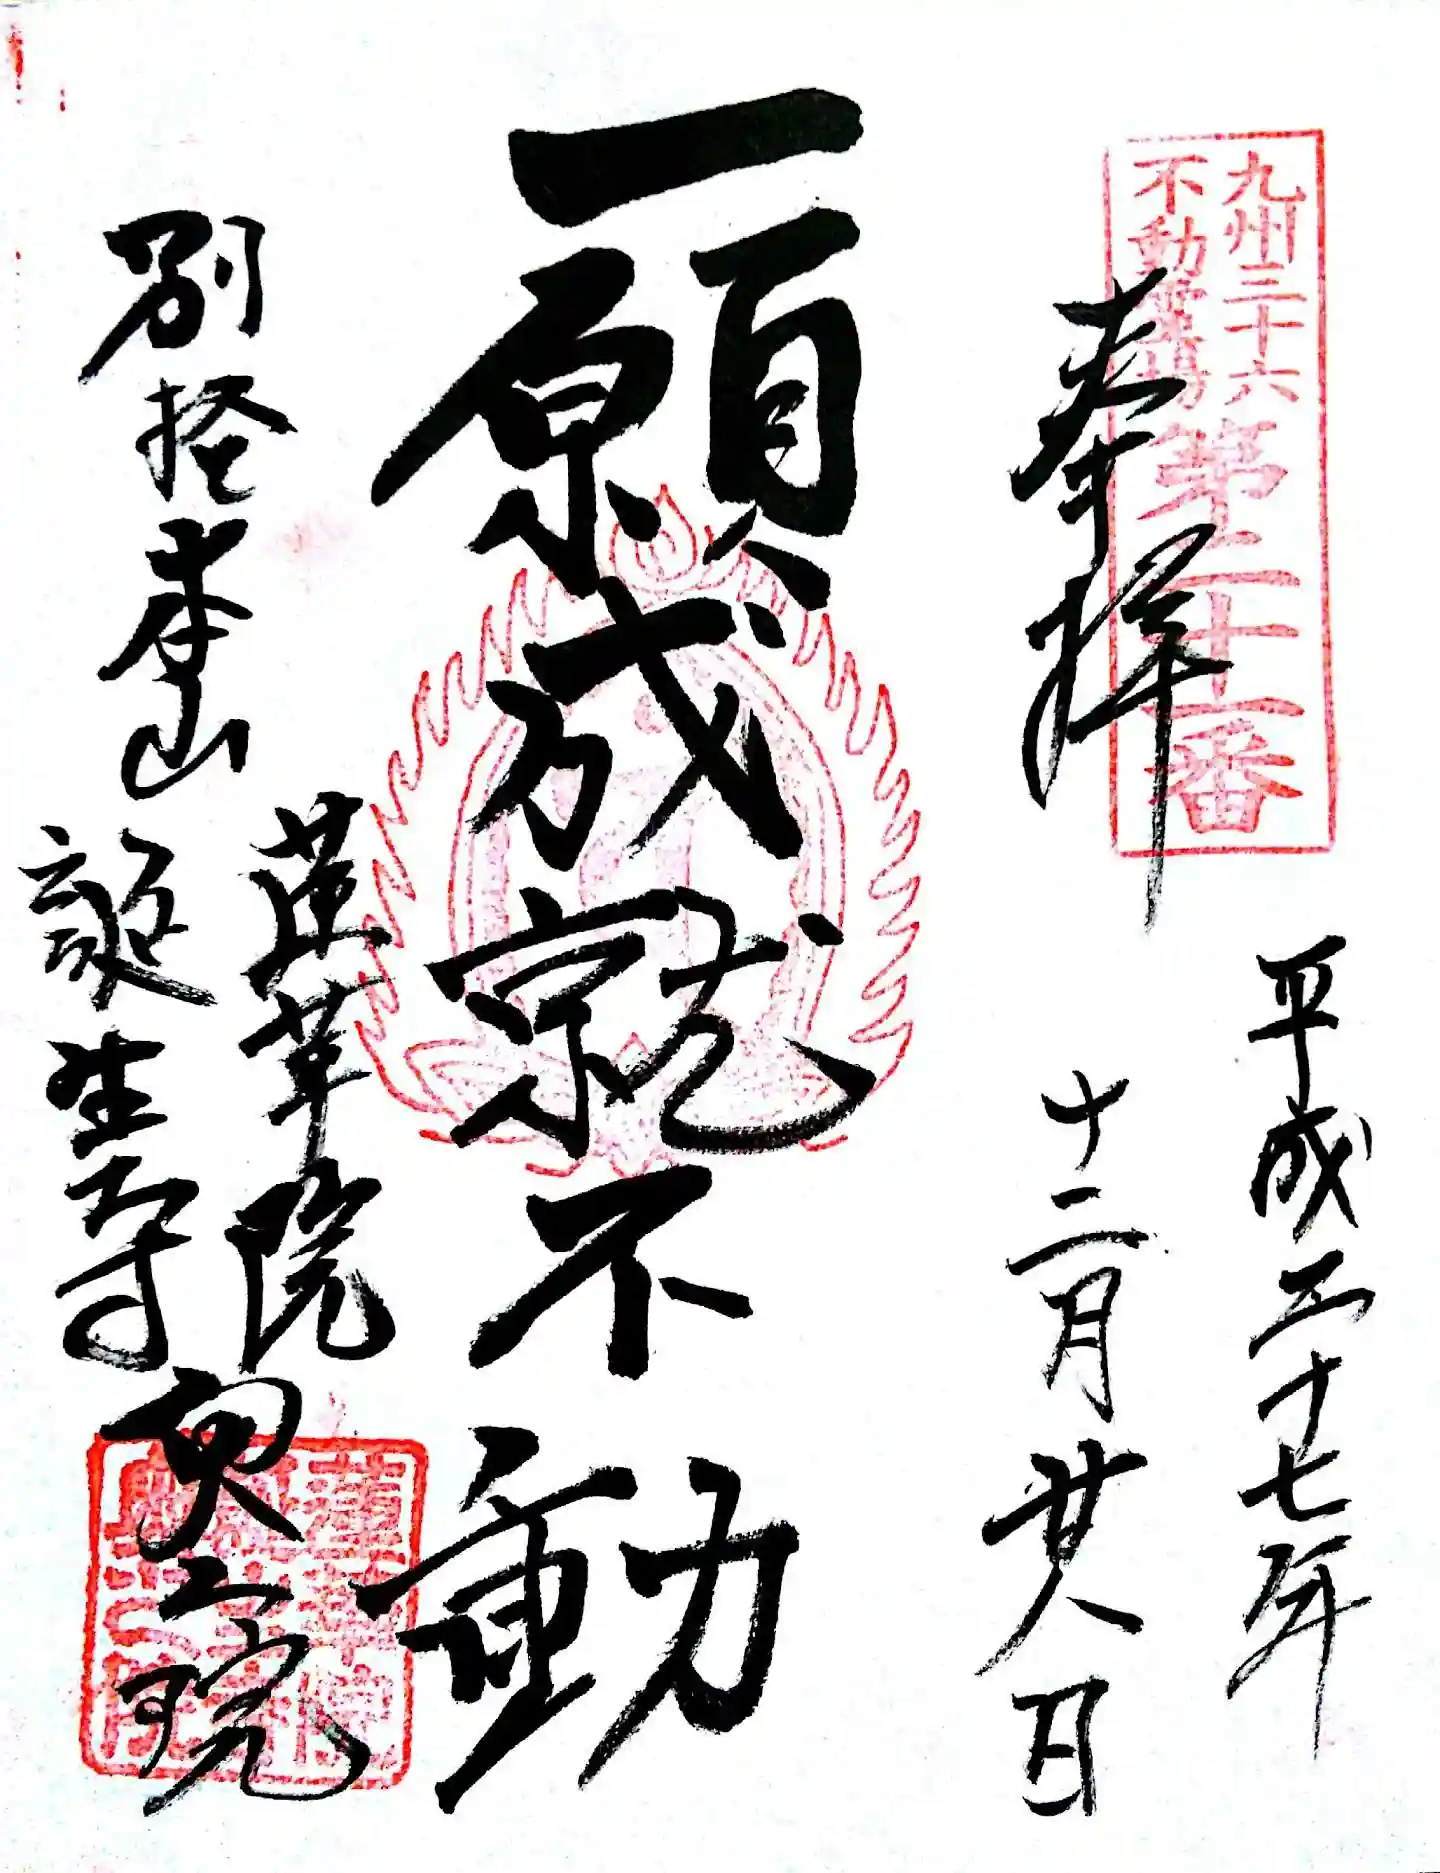 九州三十六
不動霊場
第二十二番
奉拝
平成二十七年
十二月廿八日
一願成就不動
別格本山
蓮華院
誕生寺
奥之院